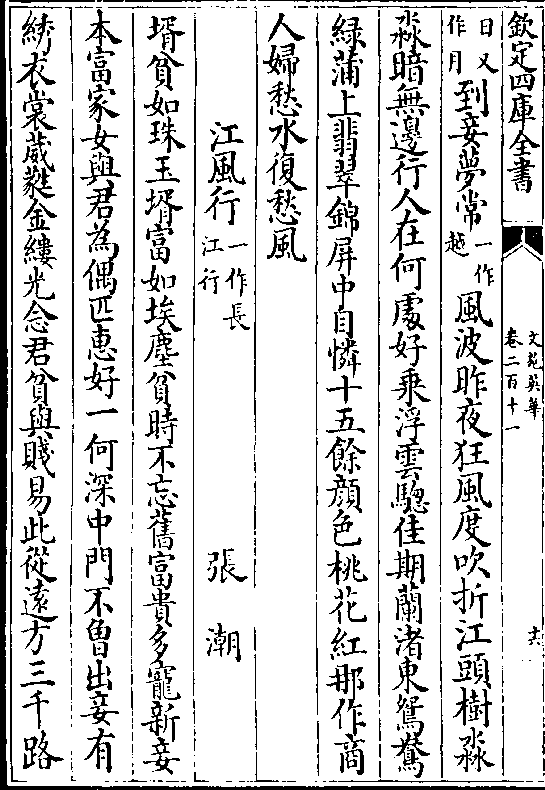 欽定四庫全書
文苑英華
卷二百十一
六
日又作月到妾夢常一作越風波昨夜狂風度吹折江頭樹淼
淼暗無邊行人在何處好乗浮雲驄佳期蘭渚東鴛鴦
緑蒲上翡翠錦屏中自憐十五餘顔色桃花紅那作商
人婦愁水復愁風
江風行一作長江行 張潮
壻貧如珠玉壻富如埃塵貧時不忘舊富貴多寵新妾
本富家女與君為偶匹惠好一何深中門不曽出妾有
綉衣裳葳蕤金縷光念君貧與賤易此從遠方三千路